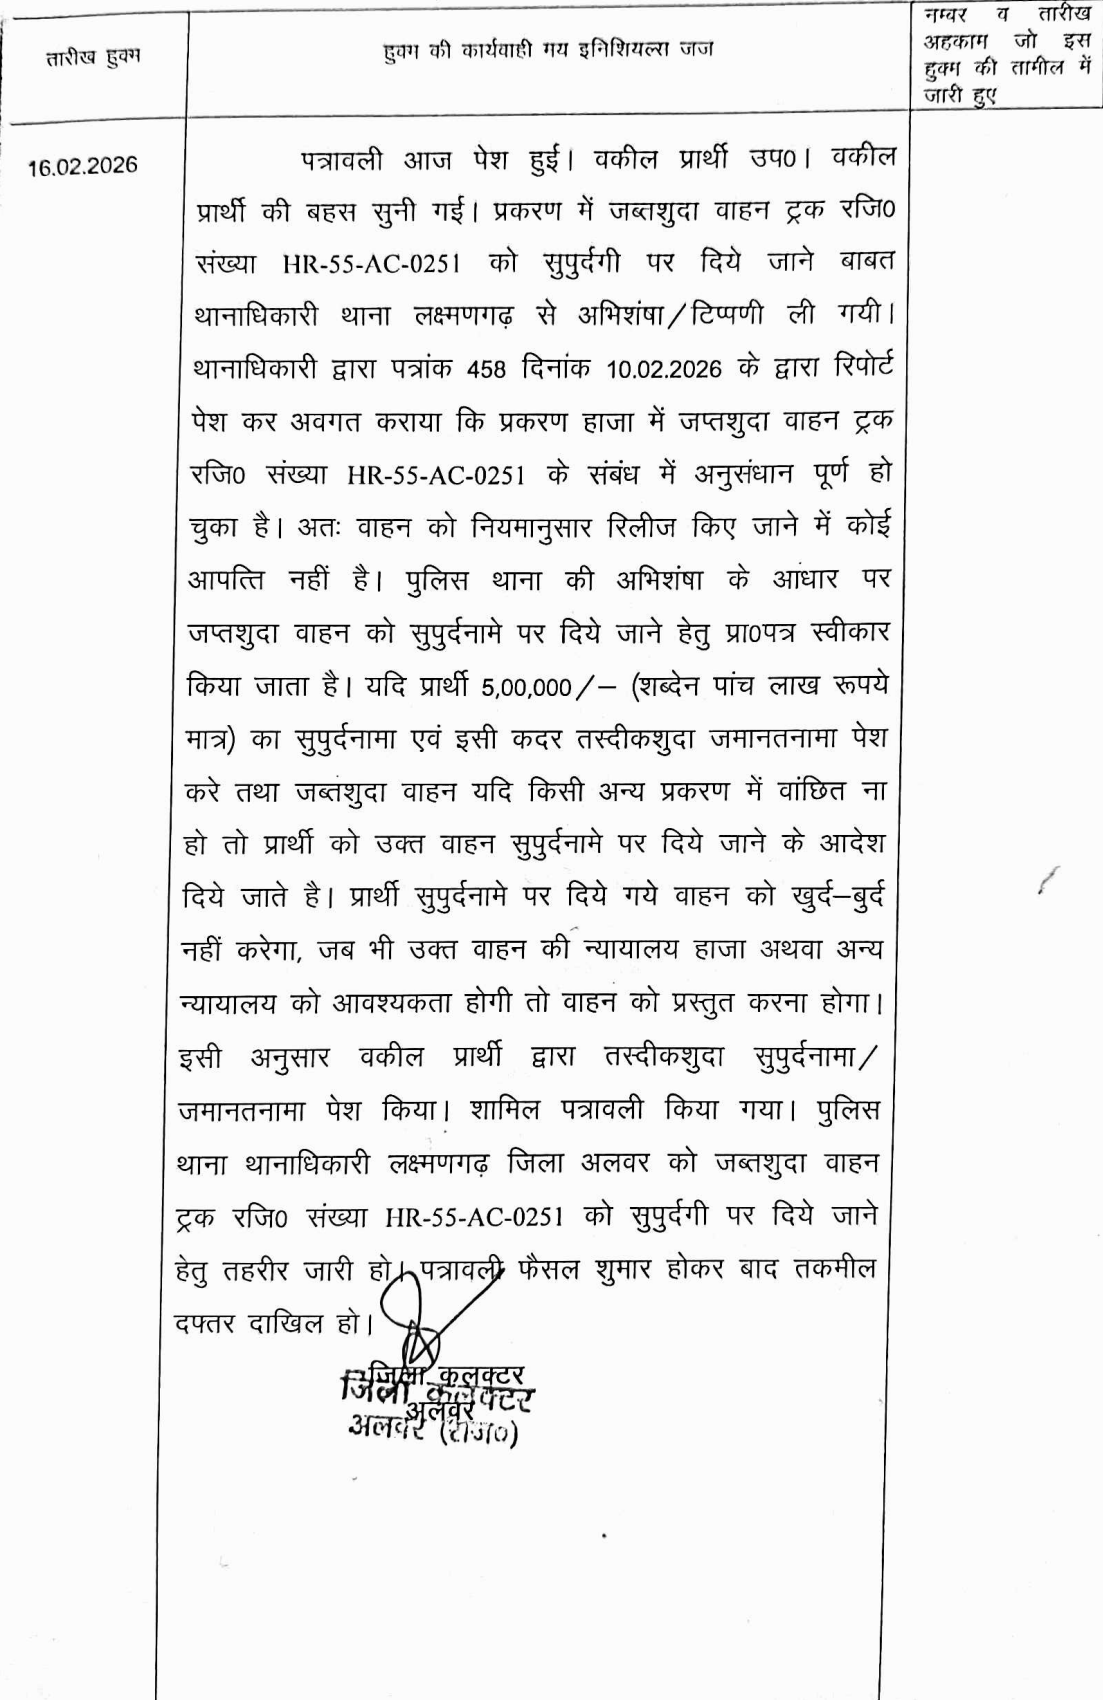 तारीख हुक्म
हुक्म की कार्यवाही मय इनिशियल्स जज
नम्बर व तारीख
अहकाम जो इस
हुक्म की तामील में
जारी हुए
16.02.2026
पत्रावली आज पेश हुई। वकील प्रार्थी उप0। वकील
प्रार्थी की बहस सुनी गई। प्रकरण में जब्तशुदा वाहन ट्रक रजि0
संख्या HR-55-AC-0251 को सुपुर्दगी पर दिये जाने बाबत
थानाधिकारी थाना लक्ष्मणगढ़ से अभिशंषा/टिप्पणी ली गयी।
थानाधिकारी द्वारा पत्रांक 458 दिनांक 10.02.2026 के द्वारा रिपोर्ट
पेश कर अवगत कराया कि प्रकरण हाजा में जप्तशुदा वाहन ट्रक
रजि0 संख्या HR-55-AC-0251 के संबंध में अनुसंधान पूर्ण हो
चुका है। अतः वाहन को नियमानुसार रिलीज किए जाने में कोई
आपत्ति नहीं है। पुलिस थाना की अभिशंषा के आधार पर
जप्तशुदा वाहन को सुपुर्दनामे पर दिये जाने हेतु प्रा0पत्र स्वीकार
किया जाता है। यदि प्रार्थी 5,00,000/– (शब्देन पांच लाख रूपये
मात्र) का सुपुर्दनामा एवं इसी कदर तस्दीकशुदा जमानतनामा पेश
करे तथा जब्तशुदा वाहन यदि किसी अन्य प्रकरण में वांछित ना
हो तो प्रार्थी को उक्त वाहन सुपुर्दनामे पर दिये जाने के आदेश
दिये जाते है। प्रार्थी सुपुर्दनामे पर दिये गये वाहन को खुर्द–बुर्द
नहीं करेगा, जब भी उक्त वाहन की न्यायालय हाजा अथवा अन्य
न्यायालय को आवश्यकता होगी तो वाहन को प्रस्तुत करना होगा।
इसी अनुसार वकील प्रार्थी द्वारा तस्दीकशुदा सुपुर्दनामा/
जमानतनामा पेश किया। शामिल पत्रावली किया गया। पुलिस
थाना थानाधिकारी लक्ष्मणगढ़ जिला अलवर को जब्तशुदा वाहन
ट्रक रजि0 संख्या HR-55-AC-0251 को सुपुर्दगी पर दिये जाने
हेतु तहरीर जारी हो। पत्रावली फैसल शुमार होकर बाद तकमील
दफ्तर दाखिल हो।
जिला कलक्टर
जिला कलक्टर
अलवर
अलवर (राज०)